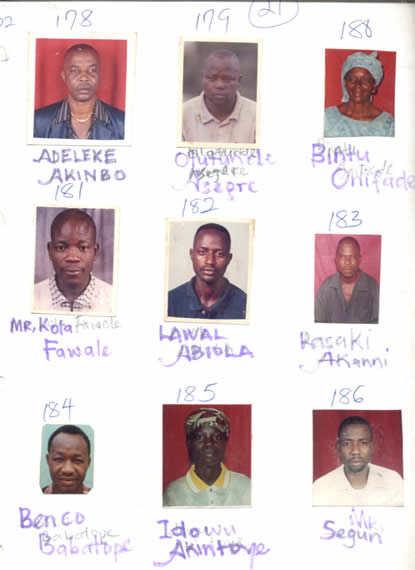 02
21
178 179 180
ADELEKE
AKINBO
Olutunde
Asegre
Bintu
Onifade
181 182 183
MR, Kola Fawole
Fawale
LAWAL
ABIOLA
Rasaki
Akanni
184 185 186
Benco
Babatope
Idowu
Akintaye
Mr
Segun